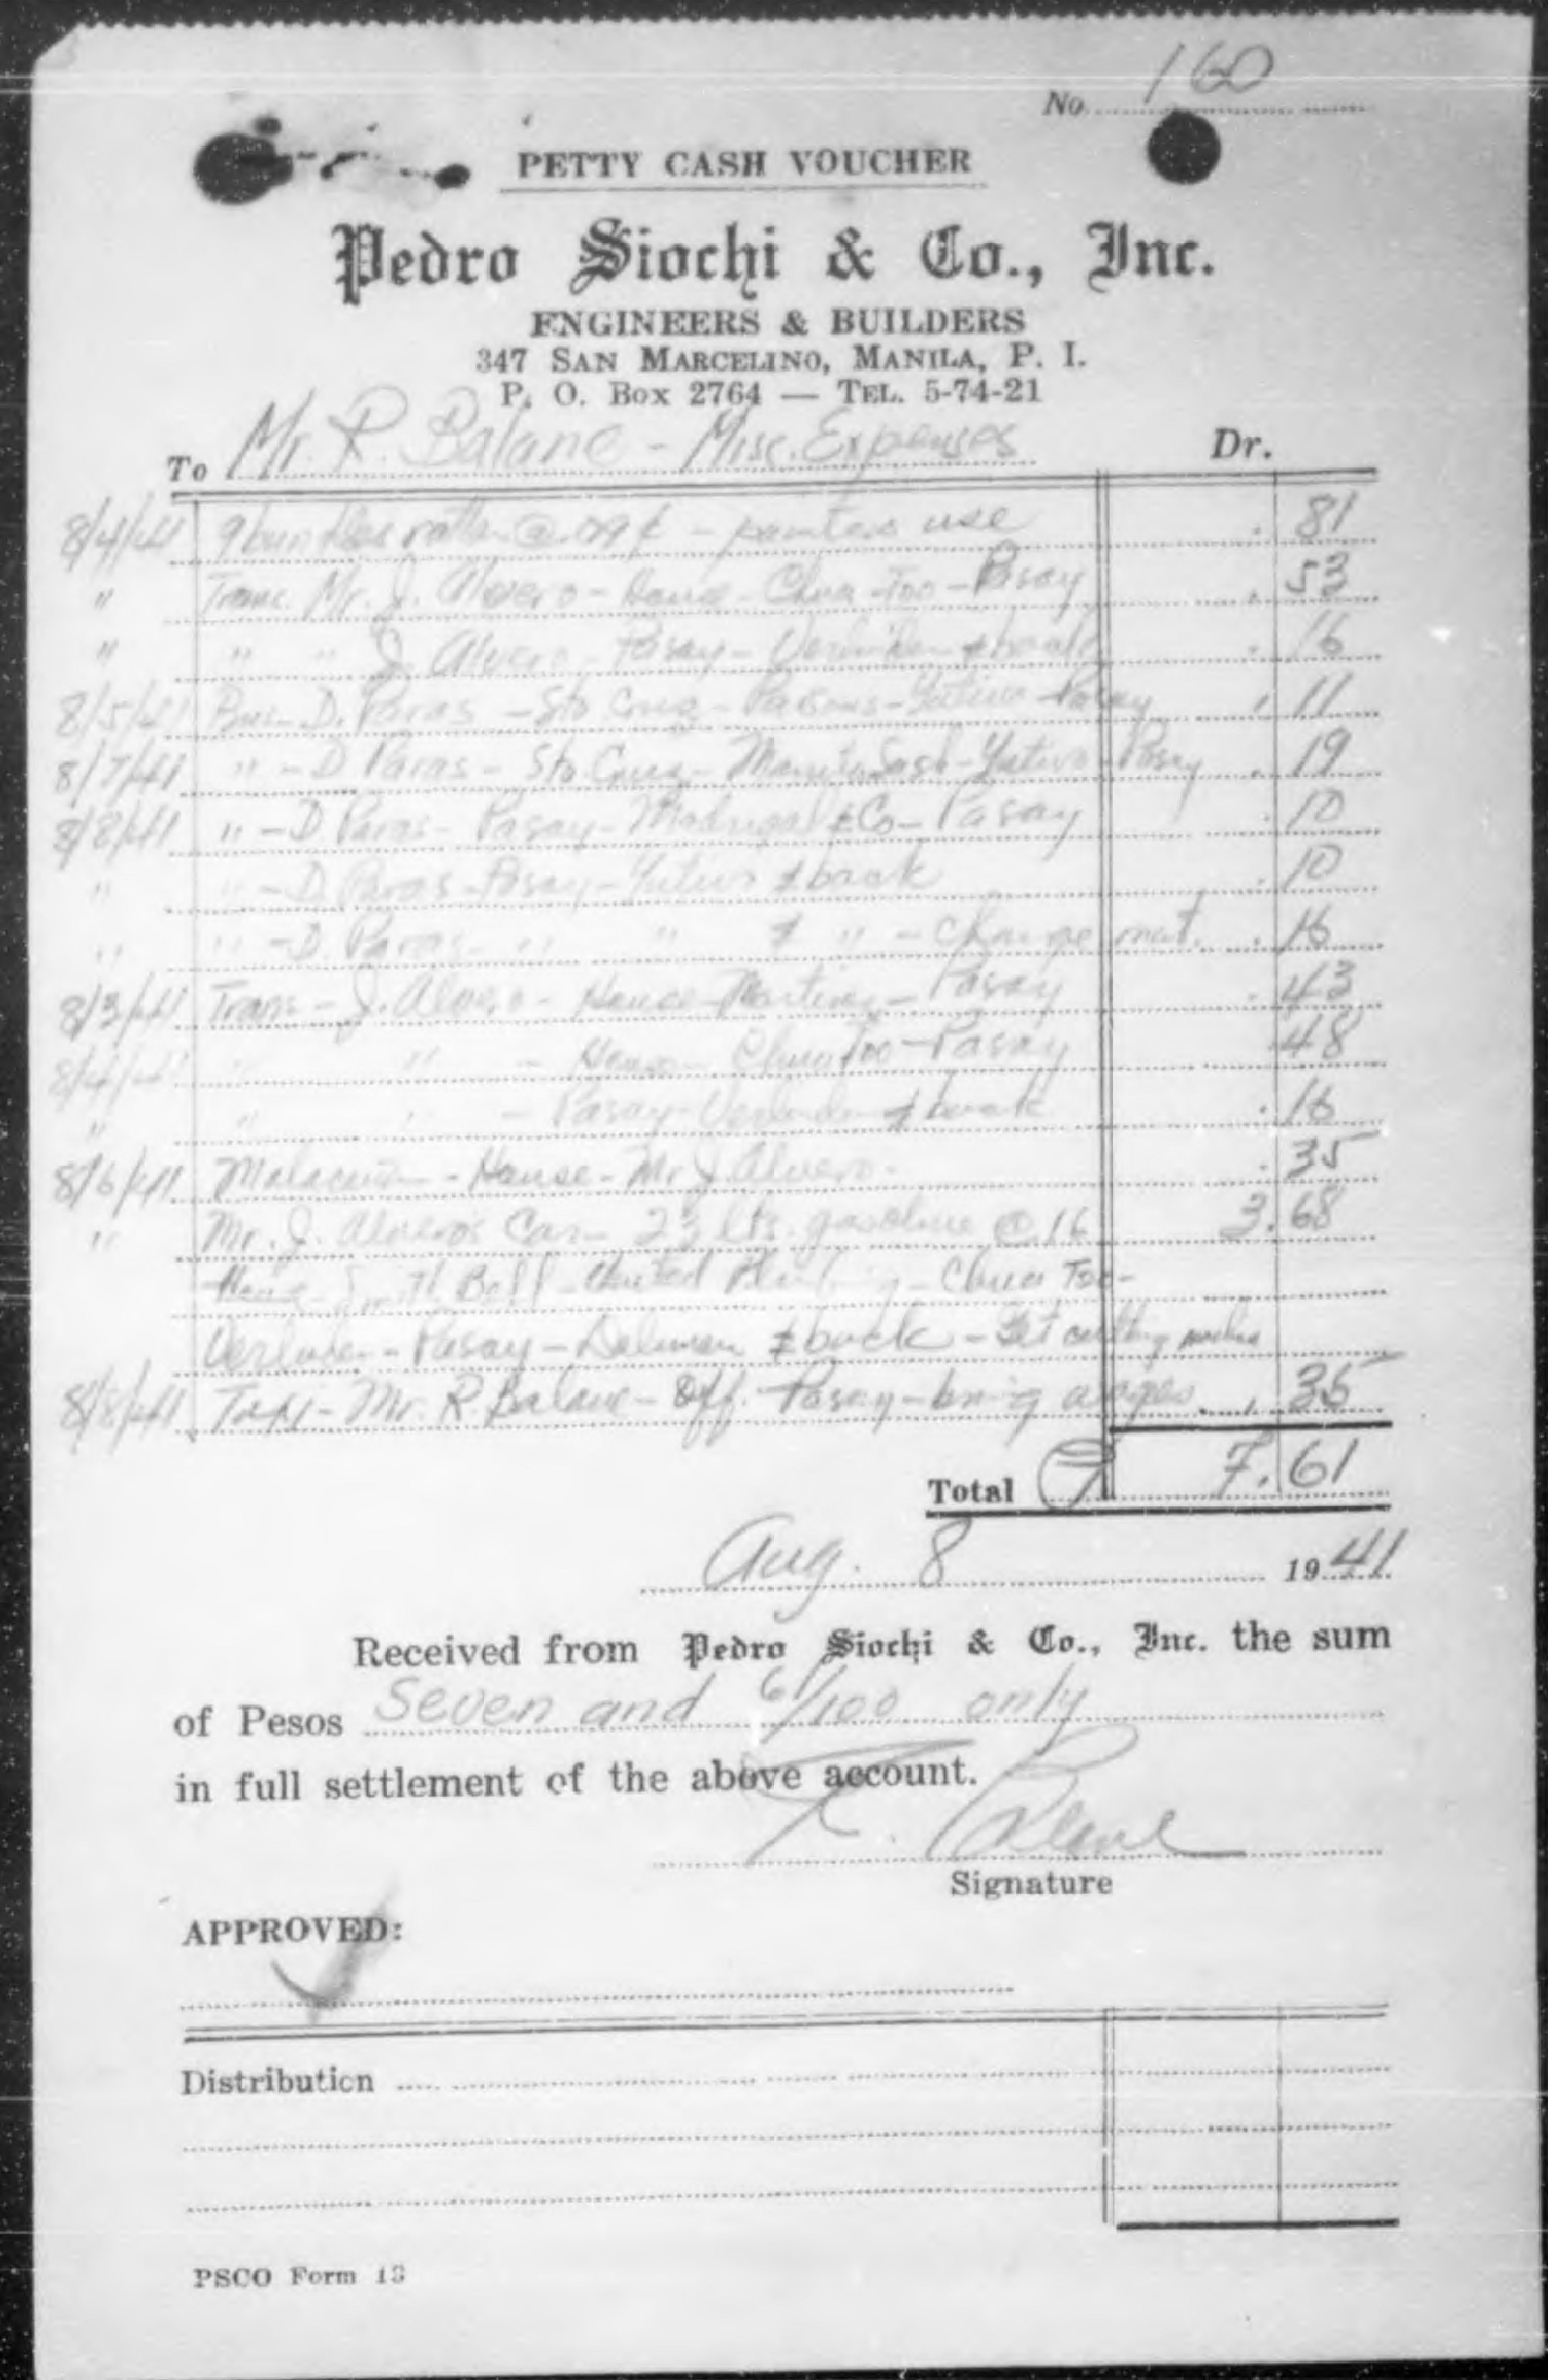 No. 160
PETTY CASH VOUCHER
Pedro Siochi & Co., Inc.
ENGINEERS & BUILDERS
347 SAN MARCELINO, MANILA, P. I.
P. O. Box 2764 — TEL. 5-74-21
To Mr. R. Balane - Misc. Expenses Dr.
8/4/41 9 bundles @ .09¢ - painters use .81
" Trans. Mr. J. Alvero - House - Chua Too - Pasay .53
" " " J. Alvero - Pasay - & back .16
8/5/41 Bus - D. Paras - Sto Cruz - Parsons - Yutivo - Pasay .11
8/7/41 " - D Paras - Sto. Cruz - Manila Sash - Yutivo - Pasay .19
8/8/41 " - D. Paras - Pasay - Madrigal & Co - Pasay .10
" " - D. Paras - Pasay - Yutivo & back .10
" " - D. Paras - " " & " - Change mat. .16
8/3/41 Trans - J. Alvero - House - Martinez - Pasay .43
8/4/41 " " - House - Chua Too - Pasay .48
" " " - Pasay - & back .16
8/6/41 - House - Mr J. Alvero - .35
" Mr. J. Alvero's Car - 23 lts. gasoline @ .16 3.68
Bell - United - Chua Too -
- Pasay - & back - Get cutting
8/8/41 Taxi - Mr. R. Balane - Off. - Pasay - bring wages .35
Total ₱ 7.61
Aug. 8 1941
Received from Pedro Siochi & Co., Inc. the sum
of Pesos Seven and 61/100 only
in full settlement of the above account.
R. Balane
Signature
APPROVED:
Distribution
PSCO Form 13